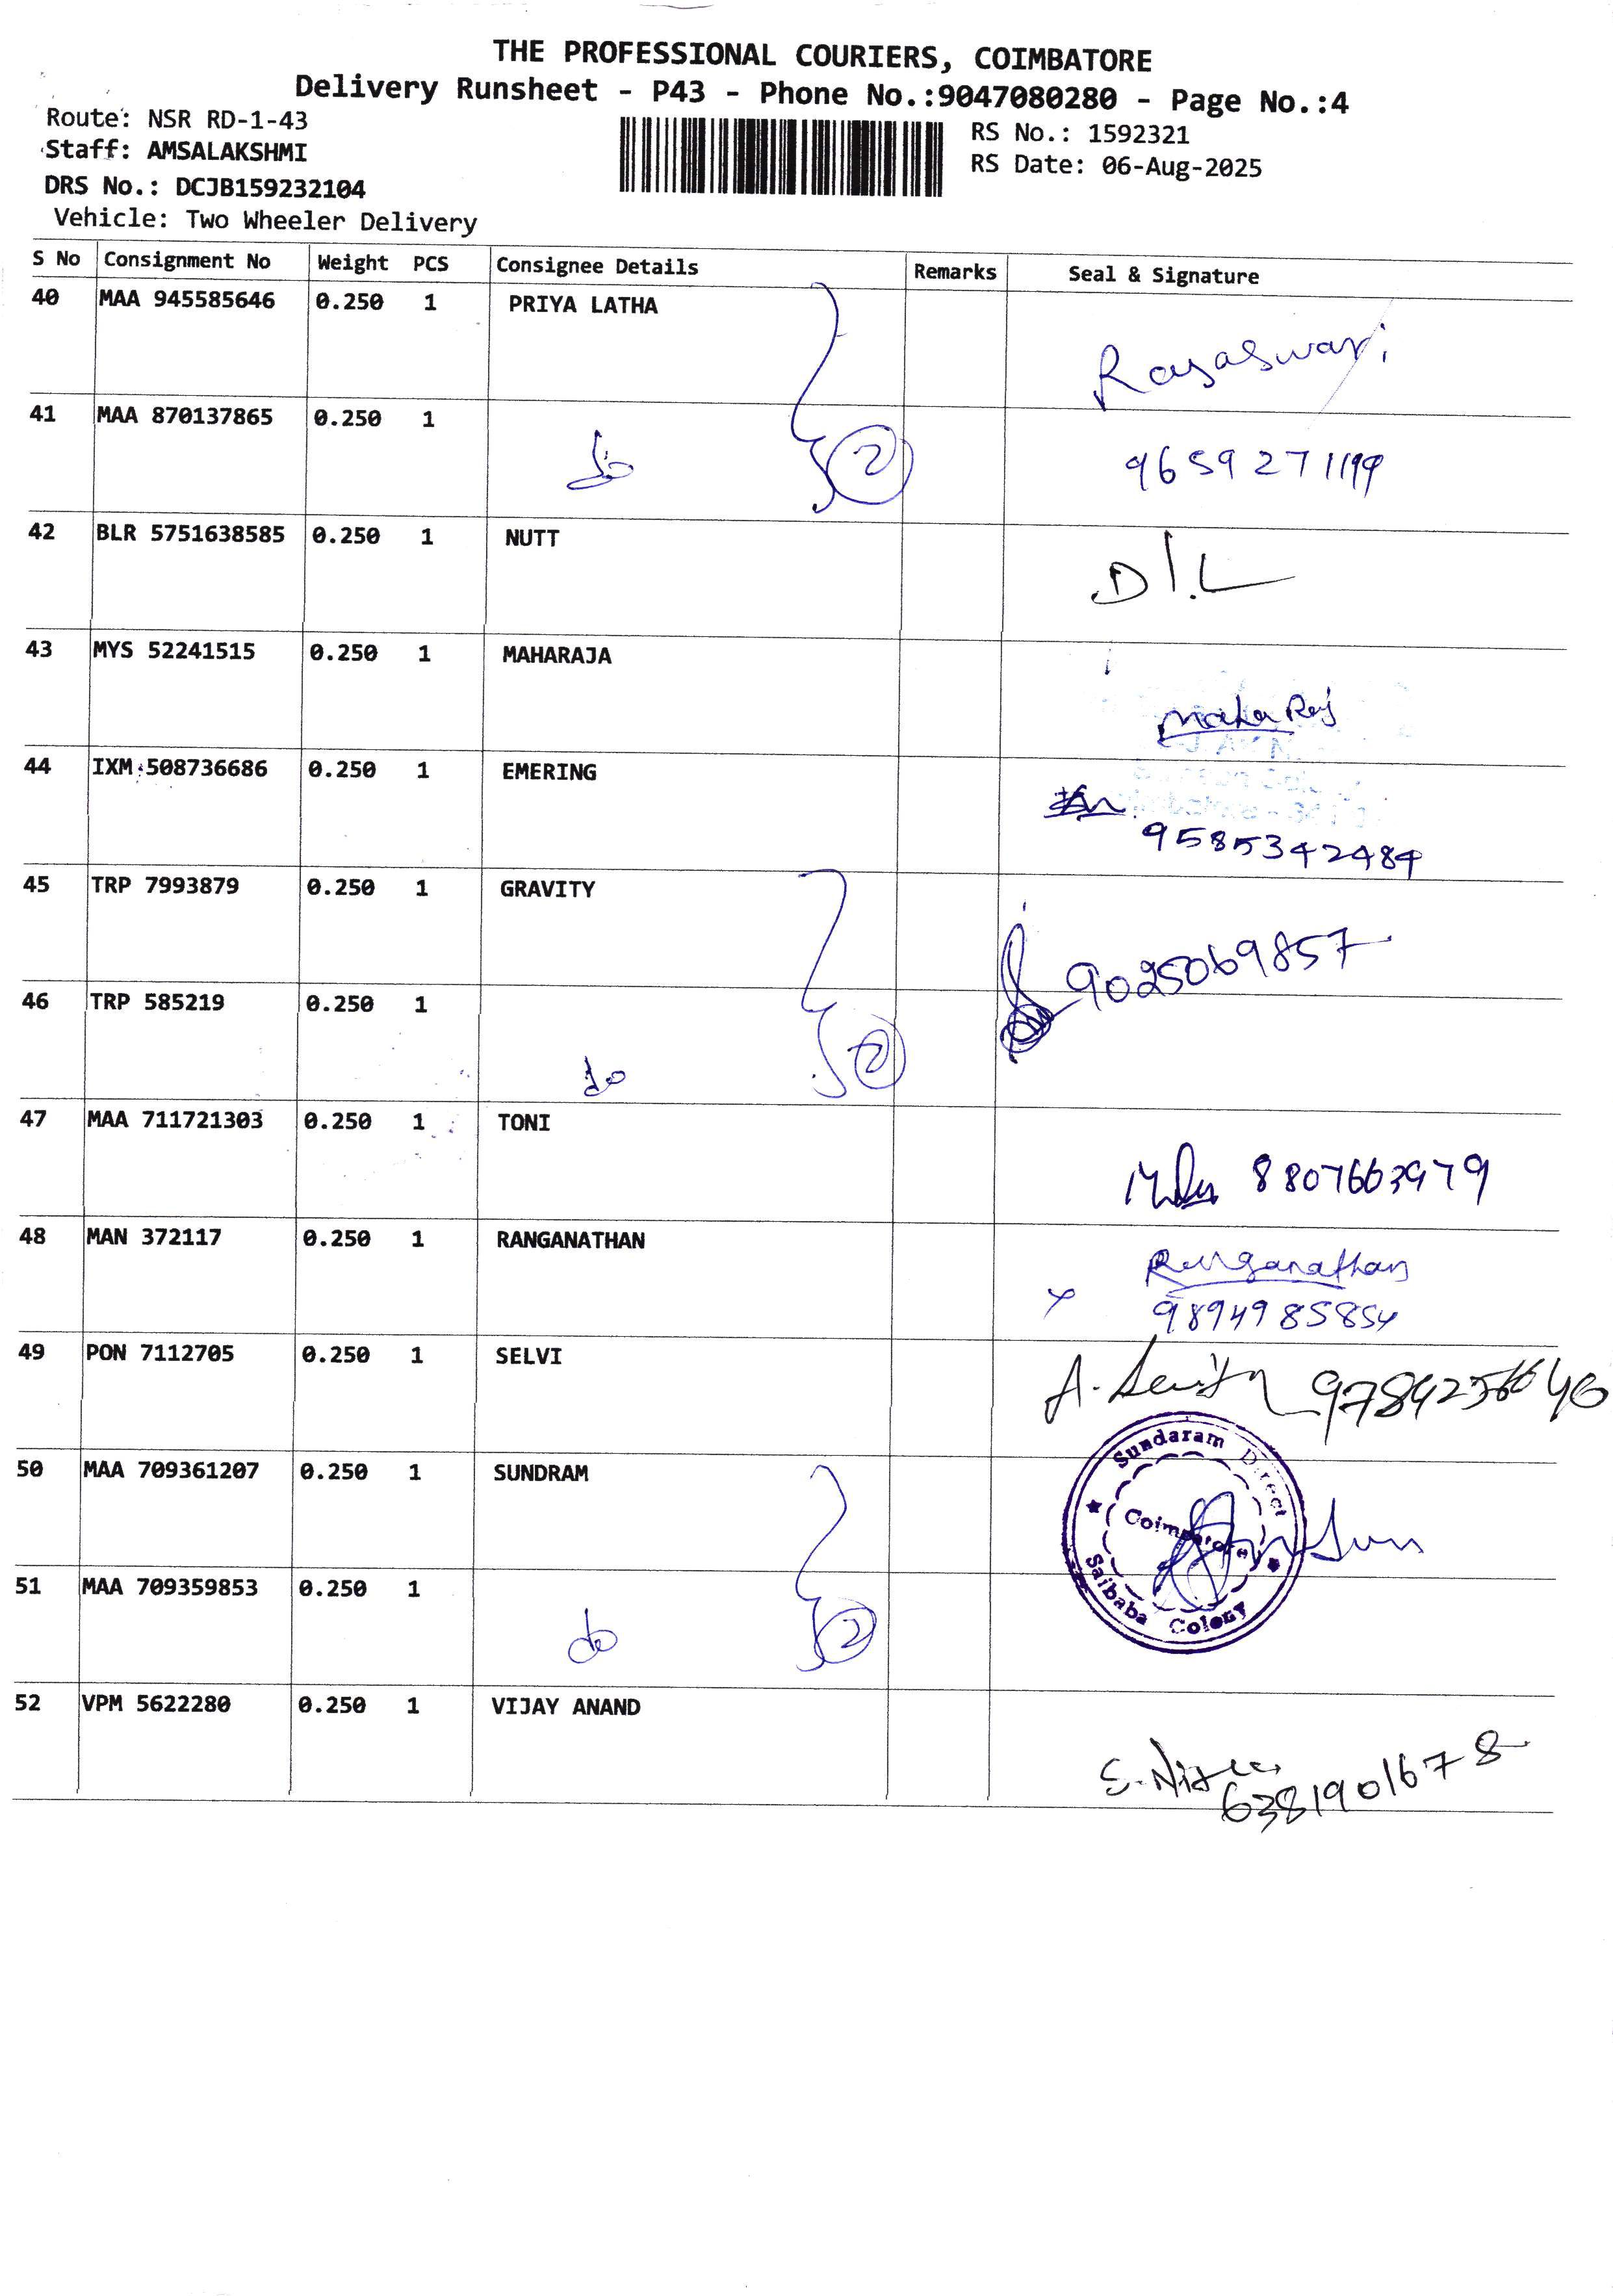 THE PROFESSIONAL COURIERS, COIMBATORE
Delivery Runsheet - P43 - Phone No.:9047080280 - Page No.:4
Route: NSR RD-1-43
Staff: AMSALAKSHMI
DRS No.: DCJB159232104
Vehicle: Two Wheeler Delivery
RS No.: 1592321
RS Date: 06-Aug-2025
S No Consignment No Weight PCS Consignee Details Remarks Seal & Signature
40 MAA 945585646 0.250 1 PRIYA LATHA
41 MAA 870137865 0.250 1 do 2
42 BLR 5751638585 0.250 1 NUTT D/L
43 MYS 52241515 0.250 1 MAHARAJA Maha Raj
44 IXM 508736686 0.250 1 EMERING
9585342484
45 TRP 7993879 0.250 1 GRAVITY 9025069857
46 TRP 585219 0.250 1 do 2
47 MAA 711721303 0.250 1 TONI 8807663979
48 MAN 372117 0.250 1 RANGANATHAN Ranganathan
9894985854
49 PON 7112705 0.250 1 SELVI
50 MAA 709361207 0.250 1 SUNDRAM
Sundaram Direct
Coimbatore
Saibaba Colony
51 MAA 709359853 0.250 1 do 2
52 VPM 5622280 0.250 1 VIJAY ANAND
6381901678